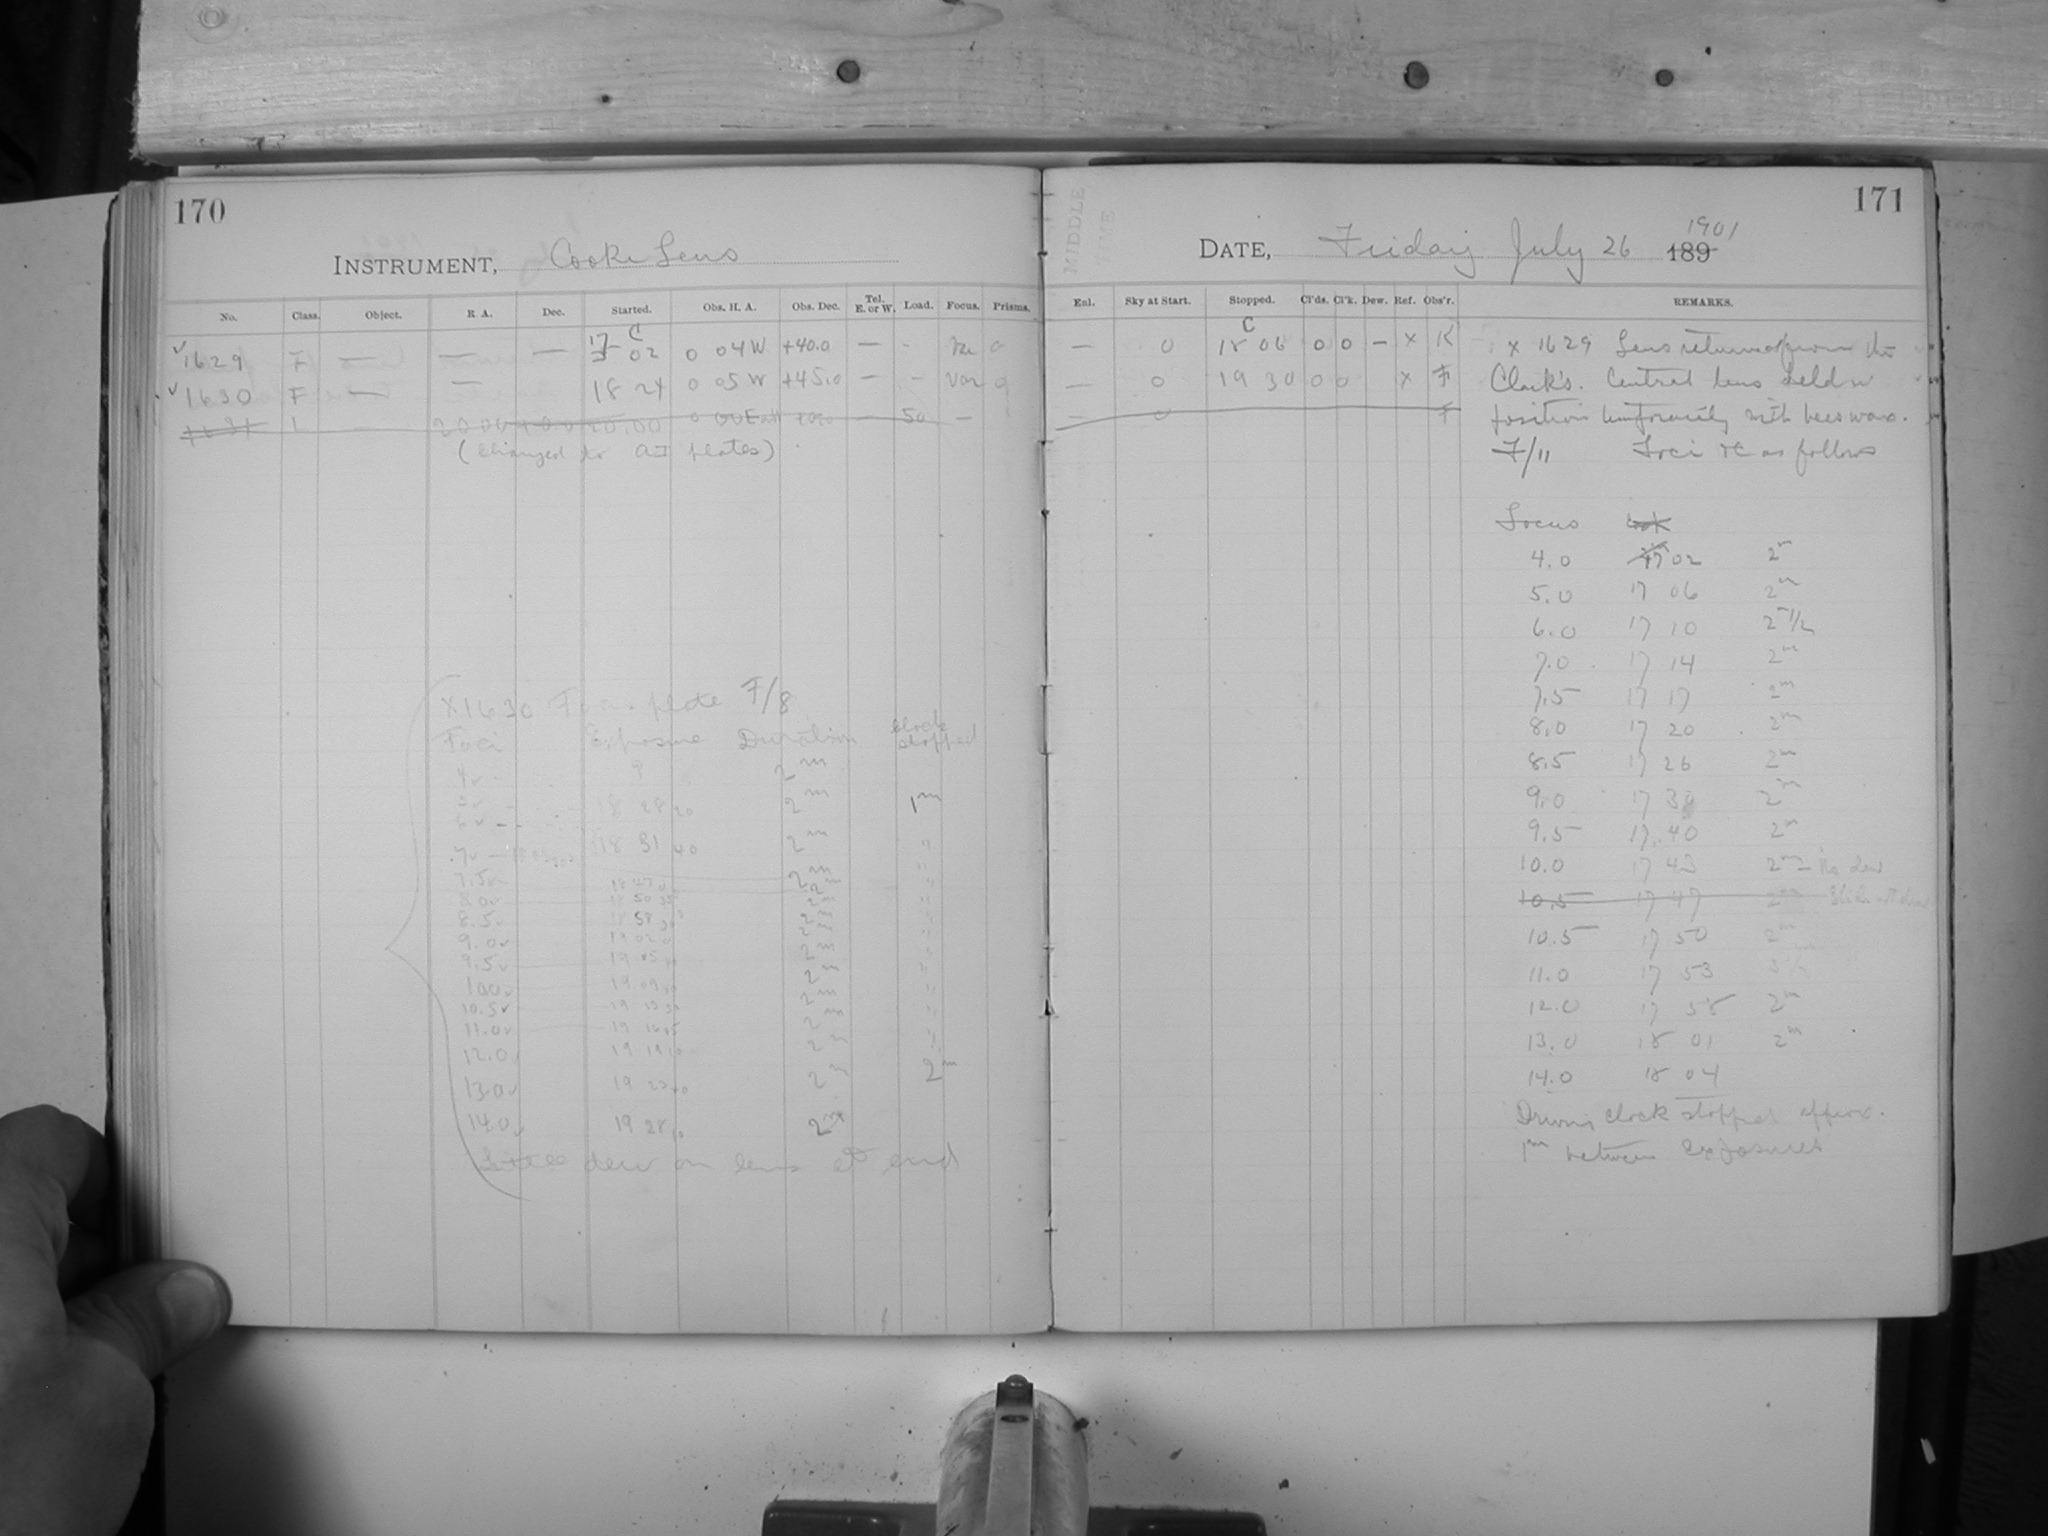 170
INSTRUMENT, Cooke Lens
No. Class. Object. R A. Dec. Started. Obs. H. A. Obs. Dec. Tel. E. or W. Load. Focus. Prisms.
1629 F — — — 17 02 0 04 W +40.0 — - Var 0
1630 F — — 18 24 0 05 W +45.0 — - Var 0
1631 L 20 00 20.00 0 — 50 —
(changed to AI plates)
X1630 Focus plate F/8
Foci Exposure Duration clock stopped
4 ? 2m
5 18 28 20 2m 1m
6
7 18 31 40 2m "
7.5 2m "
8.0 18 50 2m "
8.5 18 58 2m "
9.0 19 02 2m "
9.5 19 05 2m "
10.0 19 09 2m "
10.5 19 13 2m "
11.0 19 16 2m "
12.0 19 19 10 2m "
13.0 19 23 40 2m 2m
14.0 19 28 10 2m
Little dew on lens at end
MIDDLE
TIME
171
DATE, Friday July 26 1901 189
Enl. Sky at Start. Stopped. Cl'ds. Cl'k. Dew. Ref. Obs'r. REMARKS.
— 0 18 06 0 0 — x K x 1629 Lens returned from the
— 0 19 30 0 0 x F Clark's. Centred lens held in
— 0 F position temporarily with beeswax.
F/11 Foci &c as follows
Focus
4.0 17 02 2m
5.0 17 06 2m
6.0 17 10 2m 1/2
7.0 17 14 2m
7.5 17 17 2m
8.0 17 20 2m
8.5 17 26 2m
9.0 17 38 2m
9.5 17 40 2m
10.0 17 43 2m — No dew
10.5 17 47 2m Slide not drawn
10.5 17 50 2m
11.0 17 53
12.0 17 58 2m
13.0 18 01 2m
14.0 18 04
Driving clock stopped approx.
1m between exposures